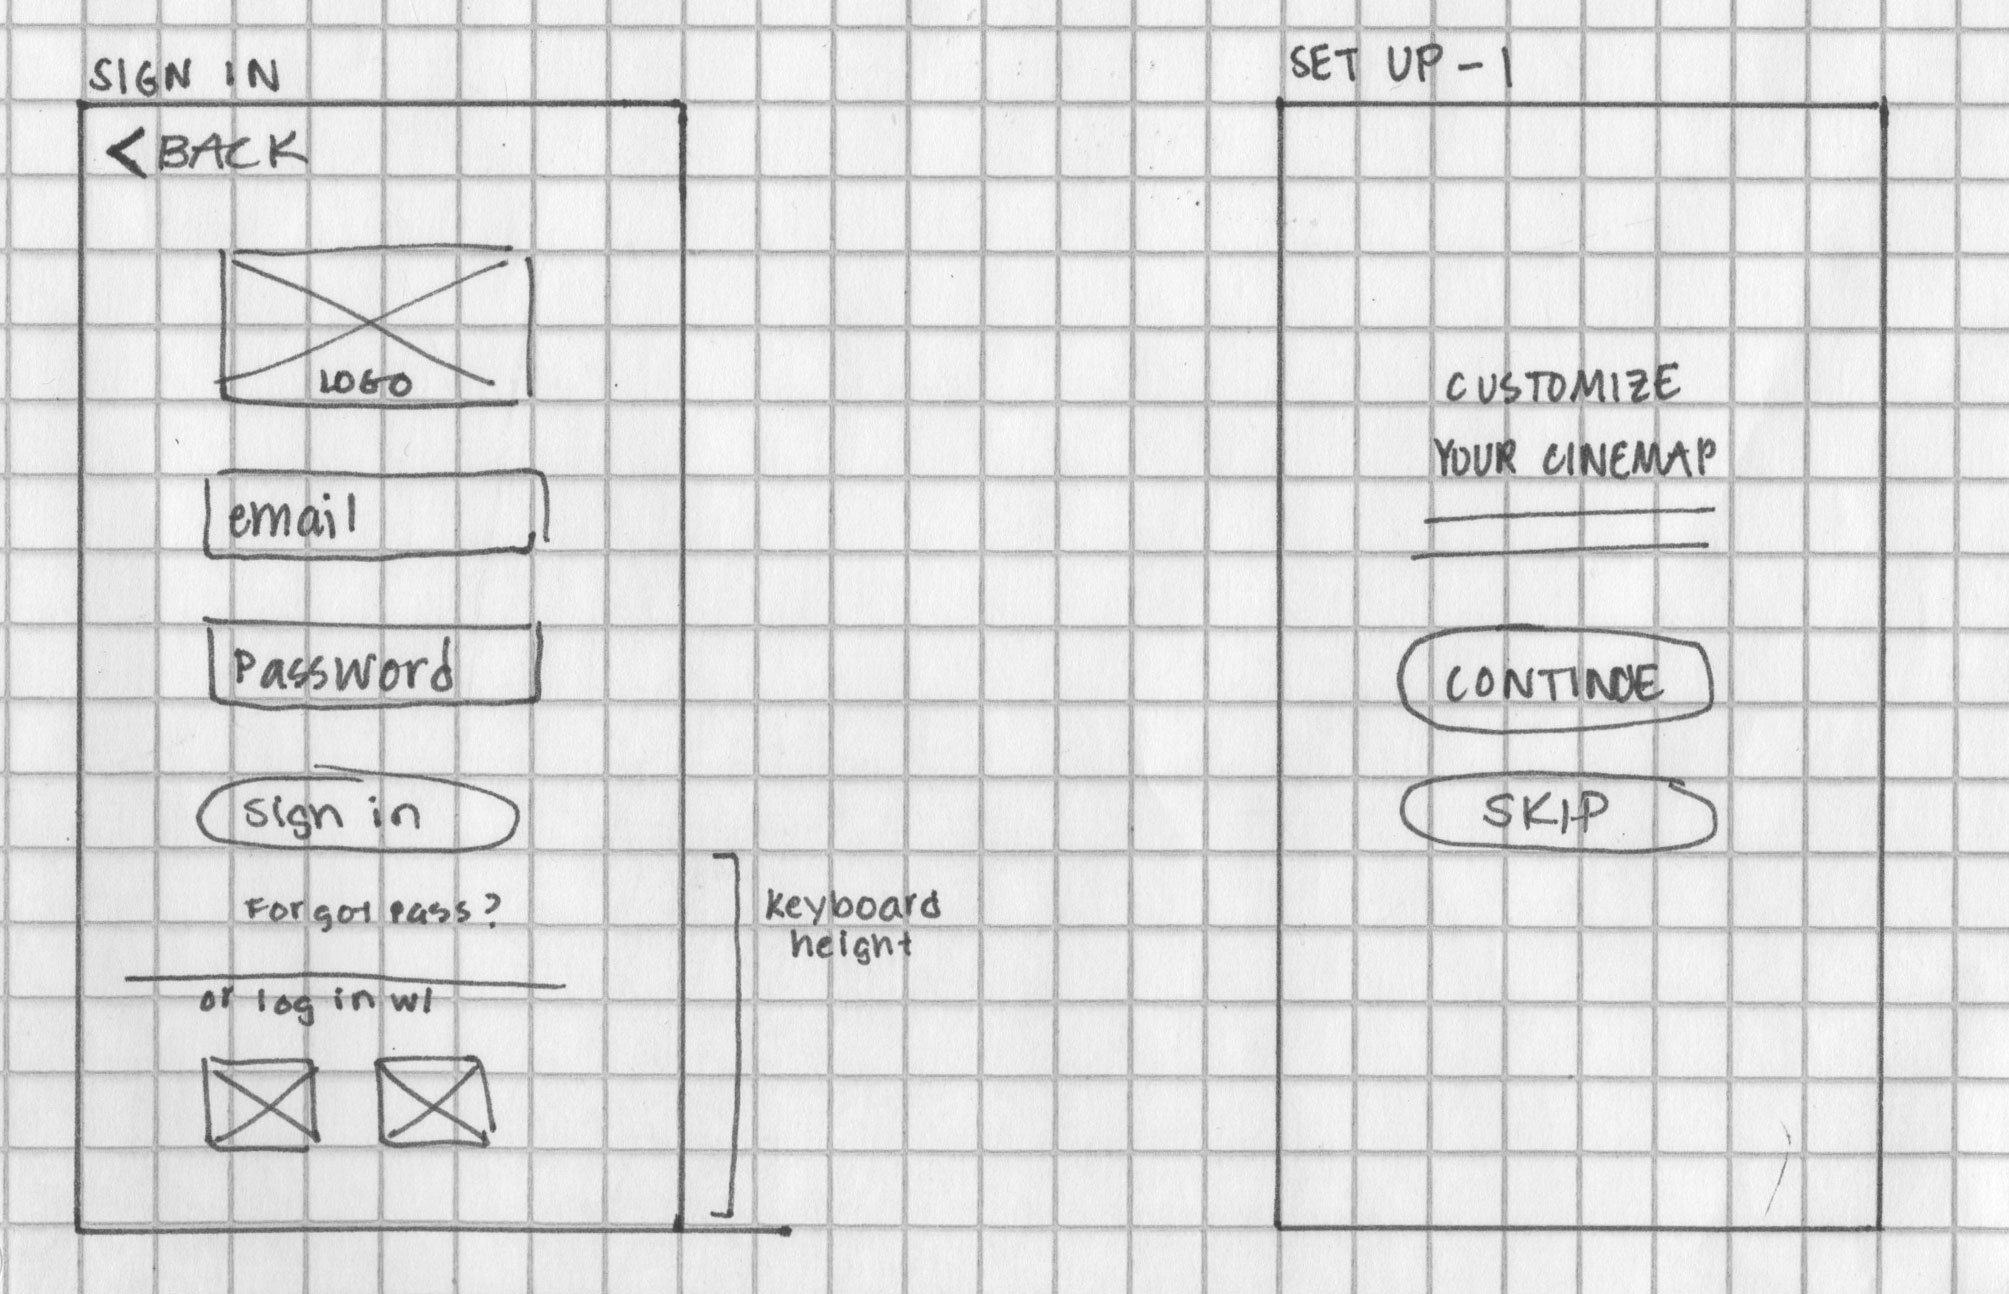 SIGN IN
< BACK
LOGO
email
Password
sign in
Forgot pass?
or log in w/
keyboard
height
SET UP - 1
CUSTOMIZE
YOUR CINEMAP
CONTINUE
SKIP